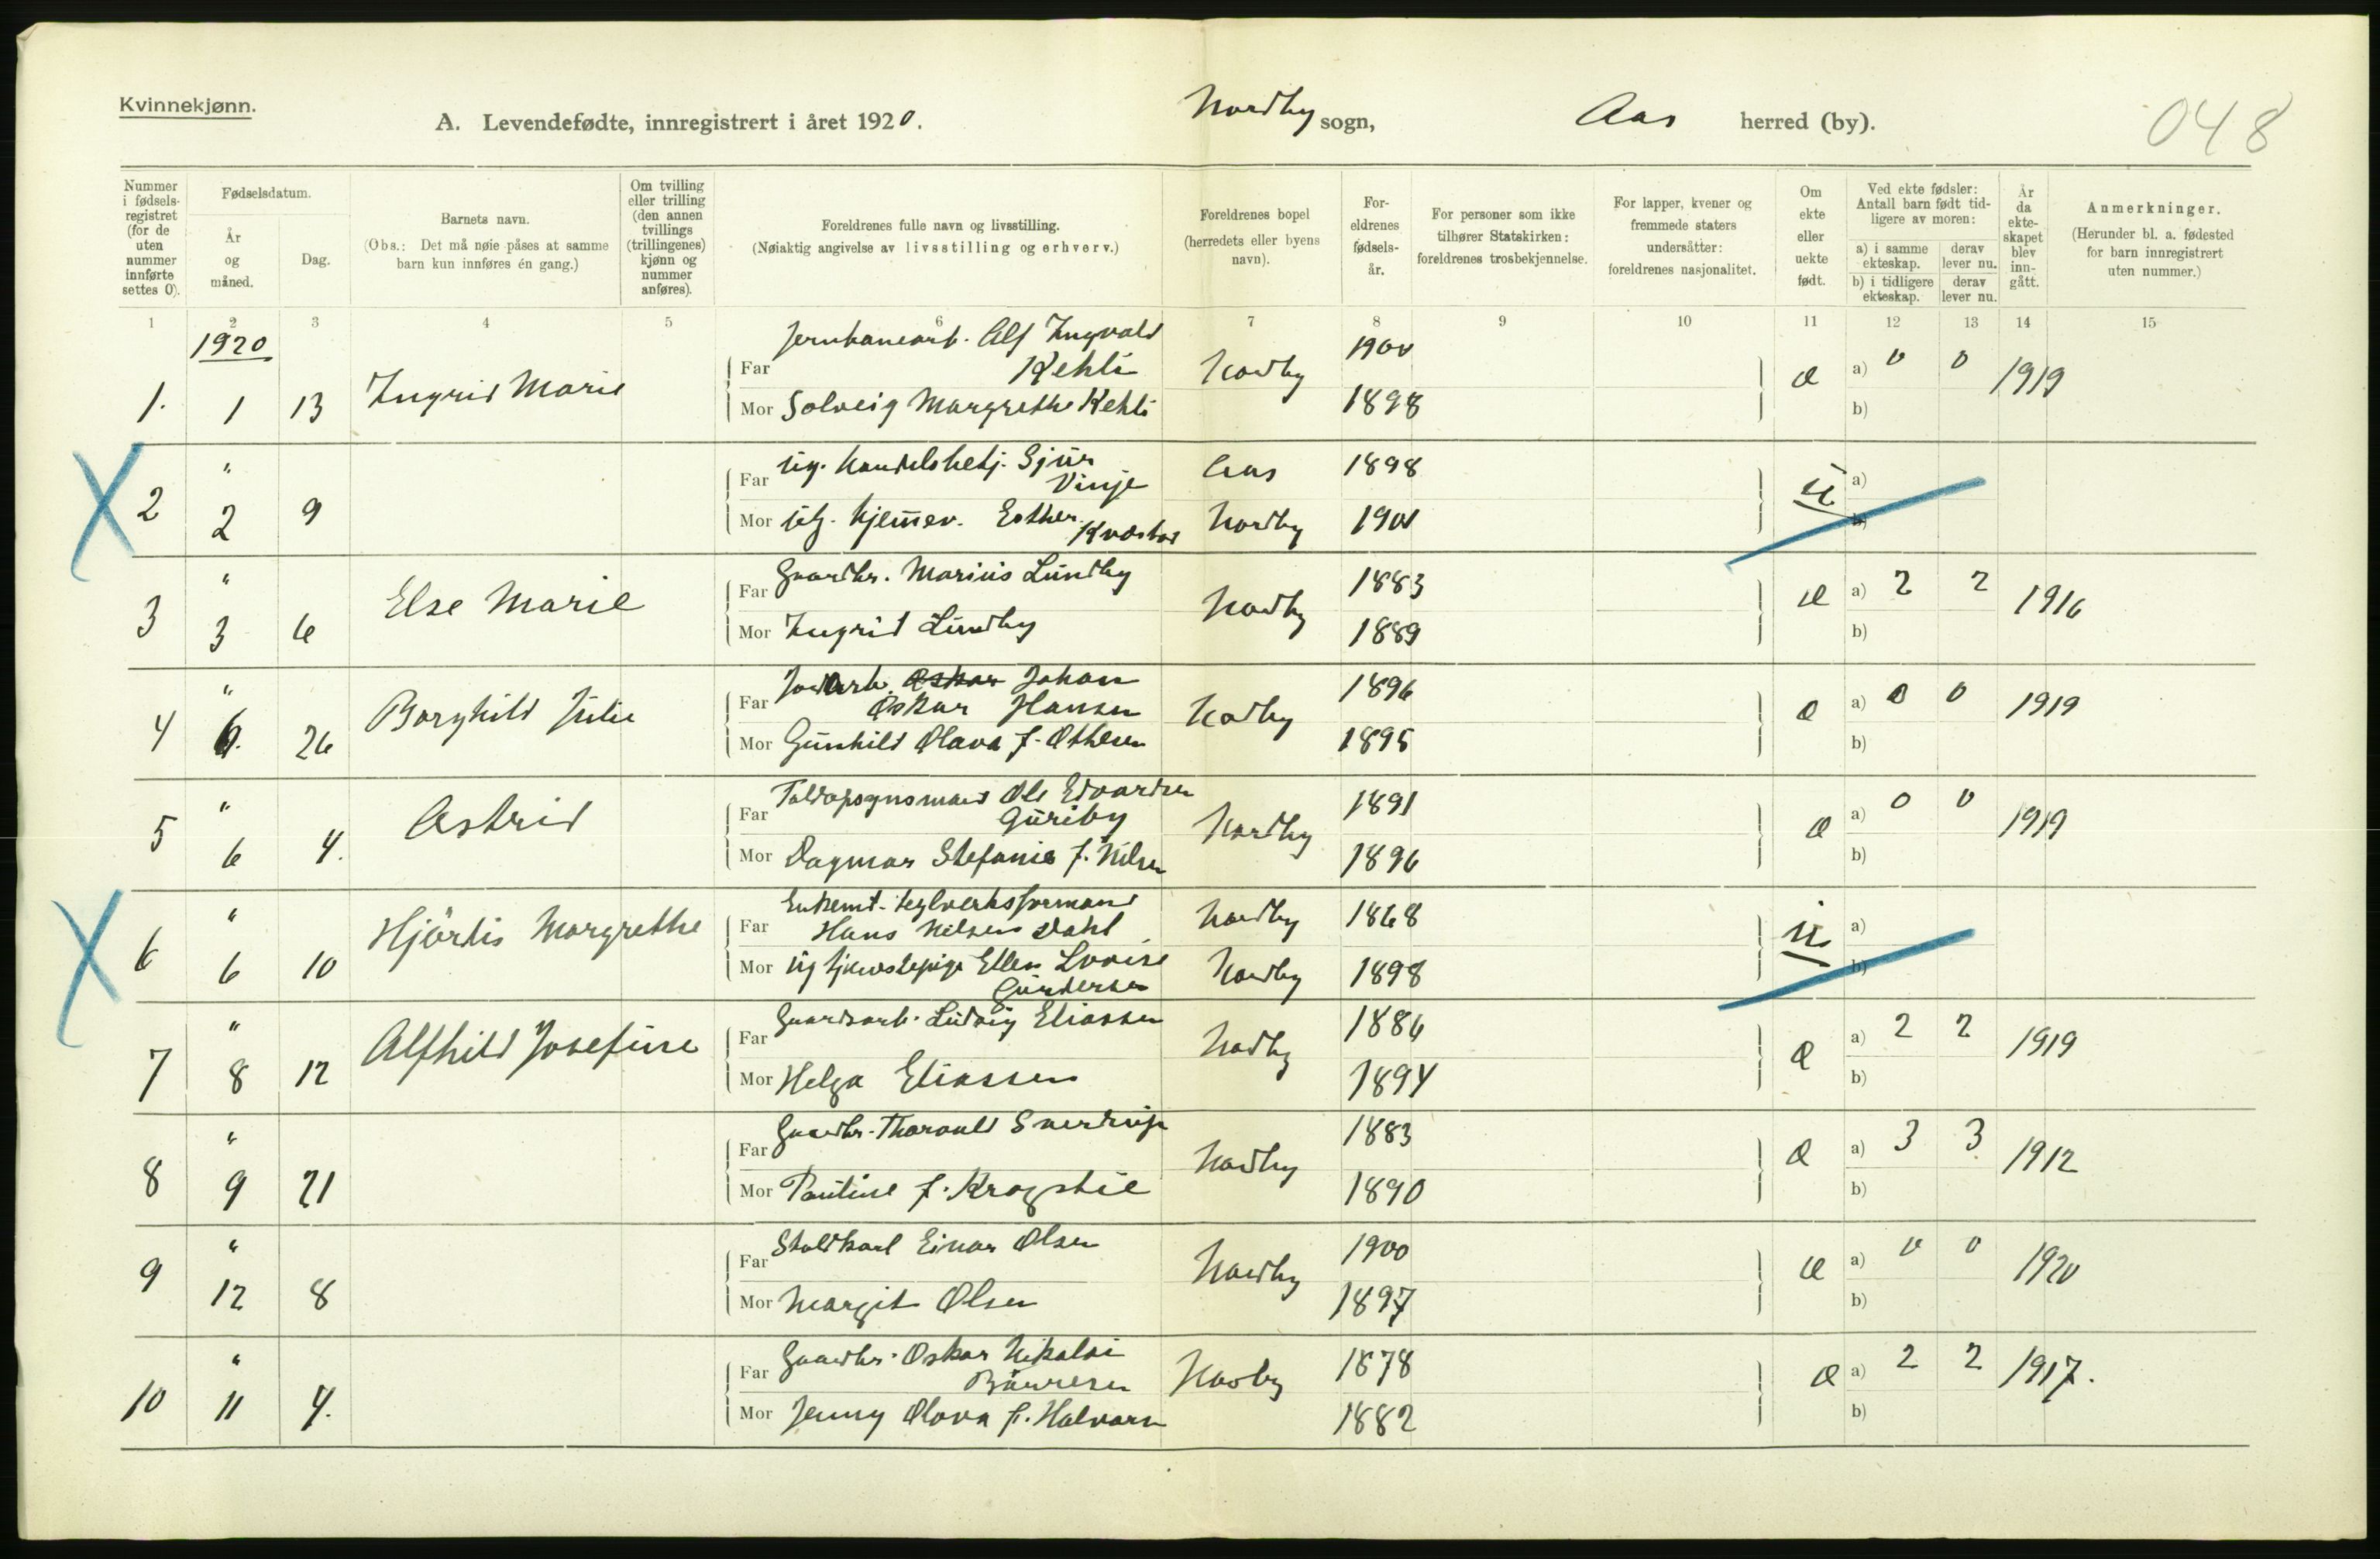 Kvinnekjønn.
A. Levendefødte, innregistrert i året 1920. Nordby sogn, Aas herred (by). 048
Nummer i fødselsregistret (for de uten nummer innførte settes 0).
Fødselsdatum.
År og måned.
Dag.
Barnets navn.
(Obs.: Det må nøie påses at samme barn kun innføres én gang.)
Om tvilling eller trilling (den annen tvillings (trillingenes) kjønn og nummer anføres).
Foreldrenes fulle navn og livsstilling.
(Nøiaktig angivelse av livsstilling og erhverv.)
Foreldrenes bopel (herredets eller byens navn).
Foreldrenes fødselsår.
For personer som ikke tilhører Statskirken: foreldrenes trosbekjennelse.
For lapper, kvener og fremmede staters undersåtter: foreldrenes nasjonalitet.
Om ekte eller uekte født.
Ved ekte fødsler: Antall barn født tidligere av moren:
a) i samme ekteskap. derav lever nu.
b) i tidligere ekteskap. derav lever nu.
År da ekteskapet blev inngått.
Anmerkninger.
(Herunder bl. a. fødested for barn innregistrert uten nummer.)
1 2 3 4 5 6 7 8 9 10 11 12 13 14 15
1920
Jernbanearb. Alf Ingvald
1. 1 13 Ingrid Marie Far Kehli Nordby 1900 æ a) 0 0 1919
Mor Solveig Margrethe Kehli 1898 b)
2 " 2 9 Far ug. Handelsbetj. Sjur Vinje Aas 1898 u a)
Mor Esther Nordby 1901 b)
3 " 3 6 Else Marie Far Gaardbr. Marius Lundby Nordby 1883 æ a) 2 2 1916
Mor Ingrid Lundby 1889 b)
4 " 6. 26 Borghild Julie Far Jordarb. Oskar Johan
Oskar Hansen Nordby 1896 æ a) 0 0 1919
Mor Gunhild Olava f. Othesen 1895 b)
5 " 6 4. Astrid Far Toldopsynsmand Ole Edvardsen
Guriby Nordby 1891 æ a) 0 0 1919
Mor Dagmar Stefania f. Nilsen 1896 b)
6 " 6 10 Hjördis Margrethe Far Enkemd. teglverksformand
Hans Nilsen Dahl Nordby 1868 u a)
Mor ug tjenestepige Ellen Lovise
Gundersen Nordby 1898 b)
7 " 8 12 Alfhild Josefine Far Gaardsarb. Ludvig Eliassen Nordby 1886 æ a) 2 2 1919
Mor Helga Eliassen 1894 b)
8 " 9 21 Far Gaardbr. Thorvald Sverdrup Nordby 1883 æ a) 3 3 1912
Mor Pauline f. Krogstie 1890 b)
9 " 12 8 Far Staldkarl Einar Olsen Nordby 1900 æ a) 0 0 1920
Mor Margit Olsen 1897 b)
10 " 11 4. Far Gaardbr. Oskar Nikolai
Nordby 1878 æ a) 2 2 1917.
Mor Jenny Olava f. Halvorsn 1882 b)